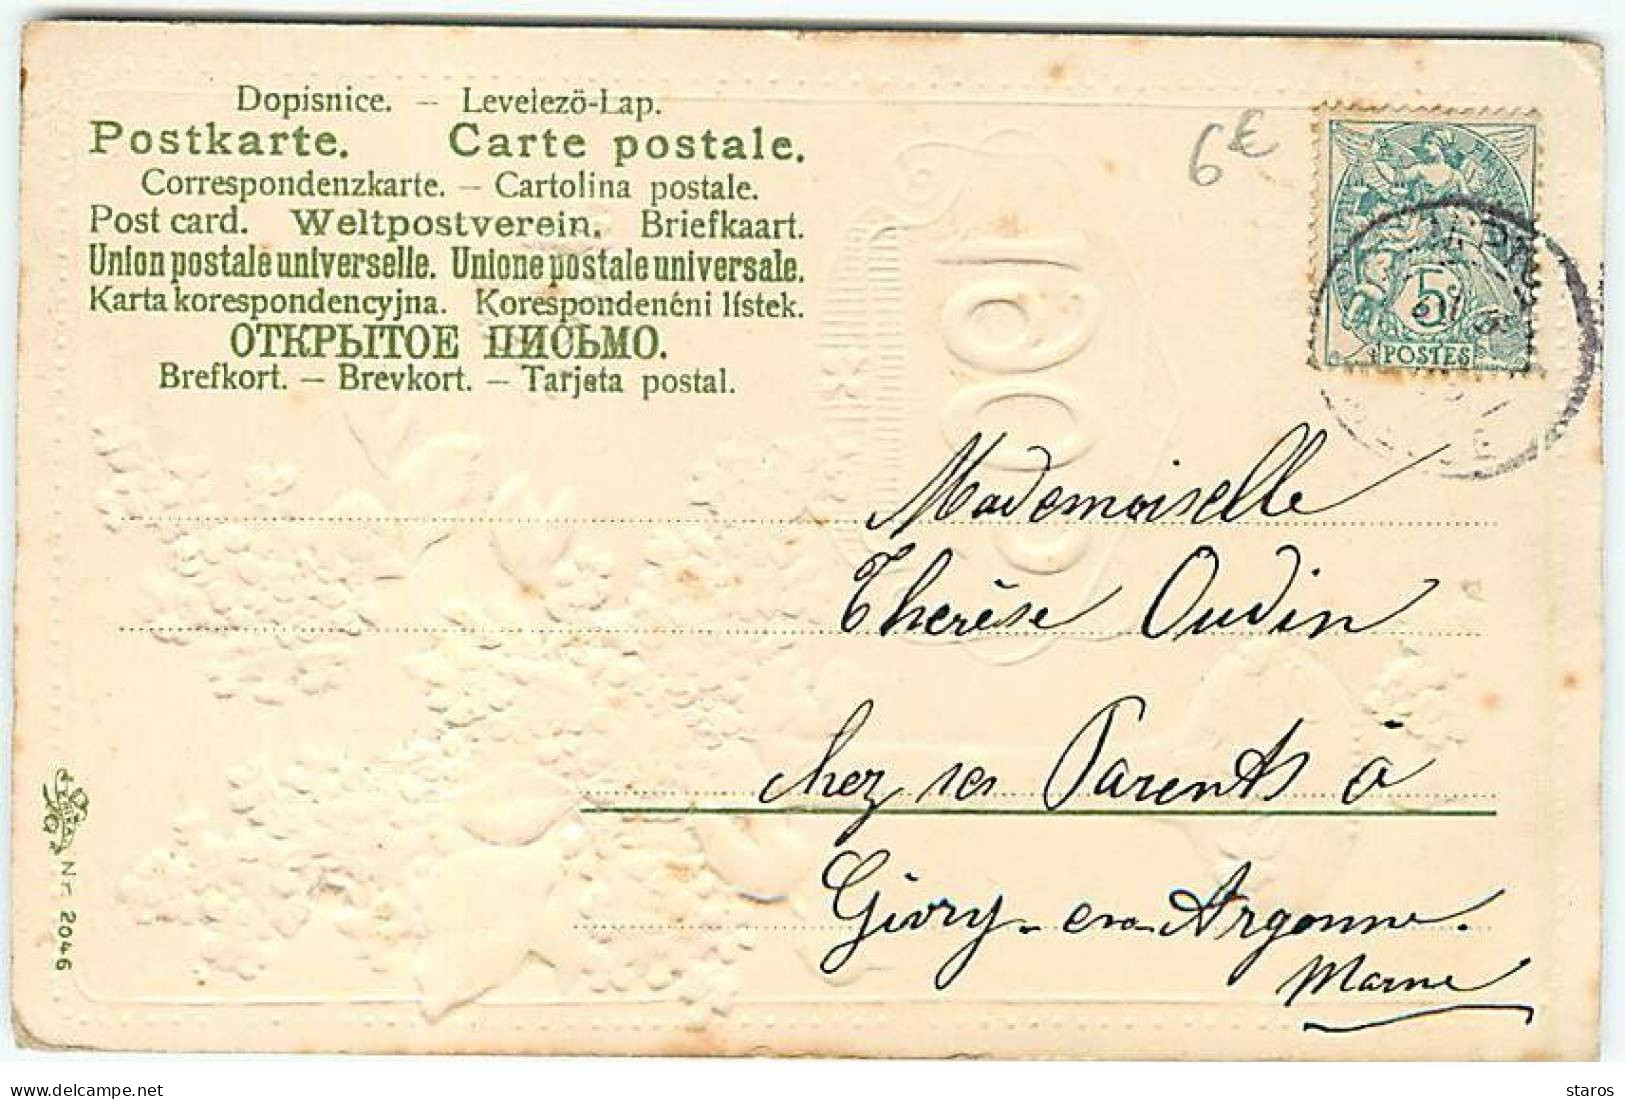 Dopisnice. – Levelező-Lap.
Postkarte. Carte postale.
Correspondenzkarte. – Cartolina postale.
Post card. Weltpostverein. Briefkaart.
Union postale universelle. Unione postale universale.
Karta korespondencyjna. Korespondenční lístek.
ОТКРЫТОЕ ПИСЬМО.
Brefkort. – Brevkort. – Tarjeta postal.
6€
5c
POSTES
Mademoiselle
Thérèse Oudin
chez ses Parents à
Givry-en-Argonne.
Marne
Nr. 2046
delcampe.net
staros